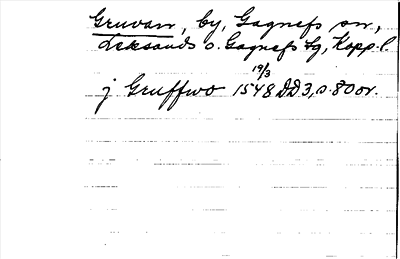 Gruvan, by, Gagnefs sn,
Leksands o. Gagnefs tg, Kopp. l.
19/3
j Gruffwo 1548 DD3, s. 80 or.